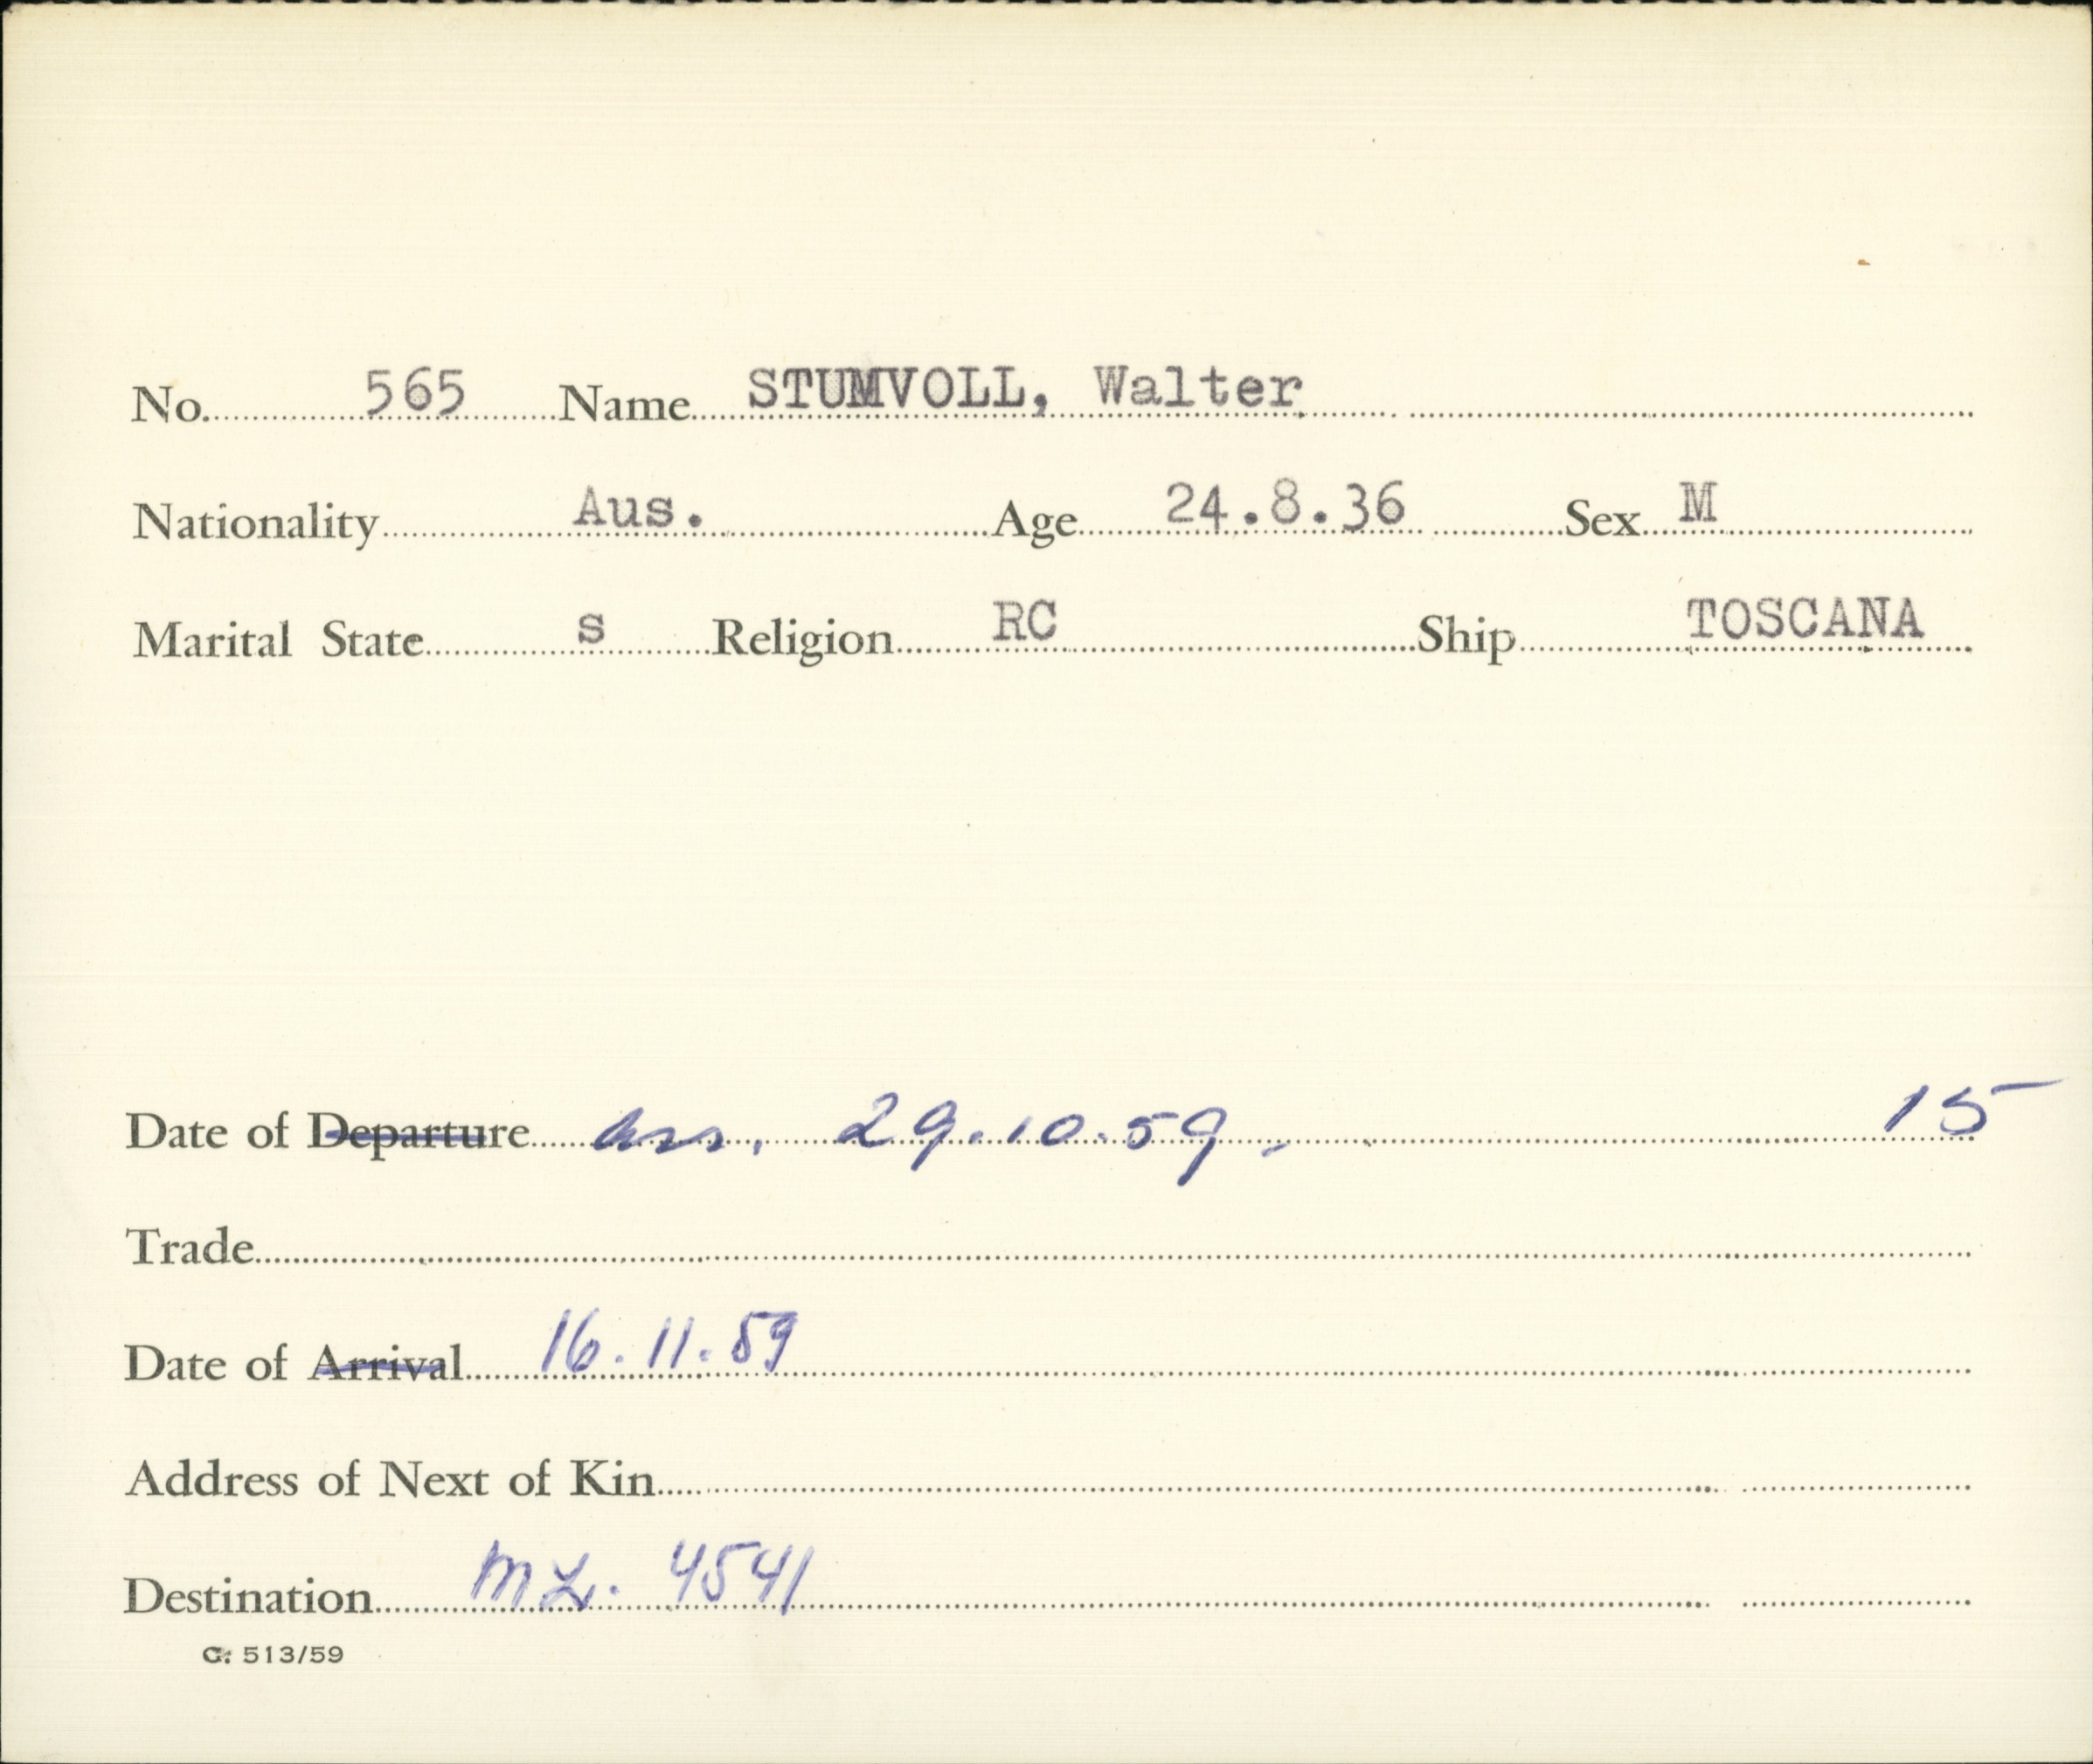 No. 565 Name STUMVOLL, Walter
Nationality Aus. Age 24.8.36 Sex M
Marital State S Religion RC Ship TOSCANA
Date of Departure arr. 29.10.59. 15
Trade
Date of Arrival 16.11.59
Address of Next of Kin
Destination 4541
C: 513/59